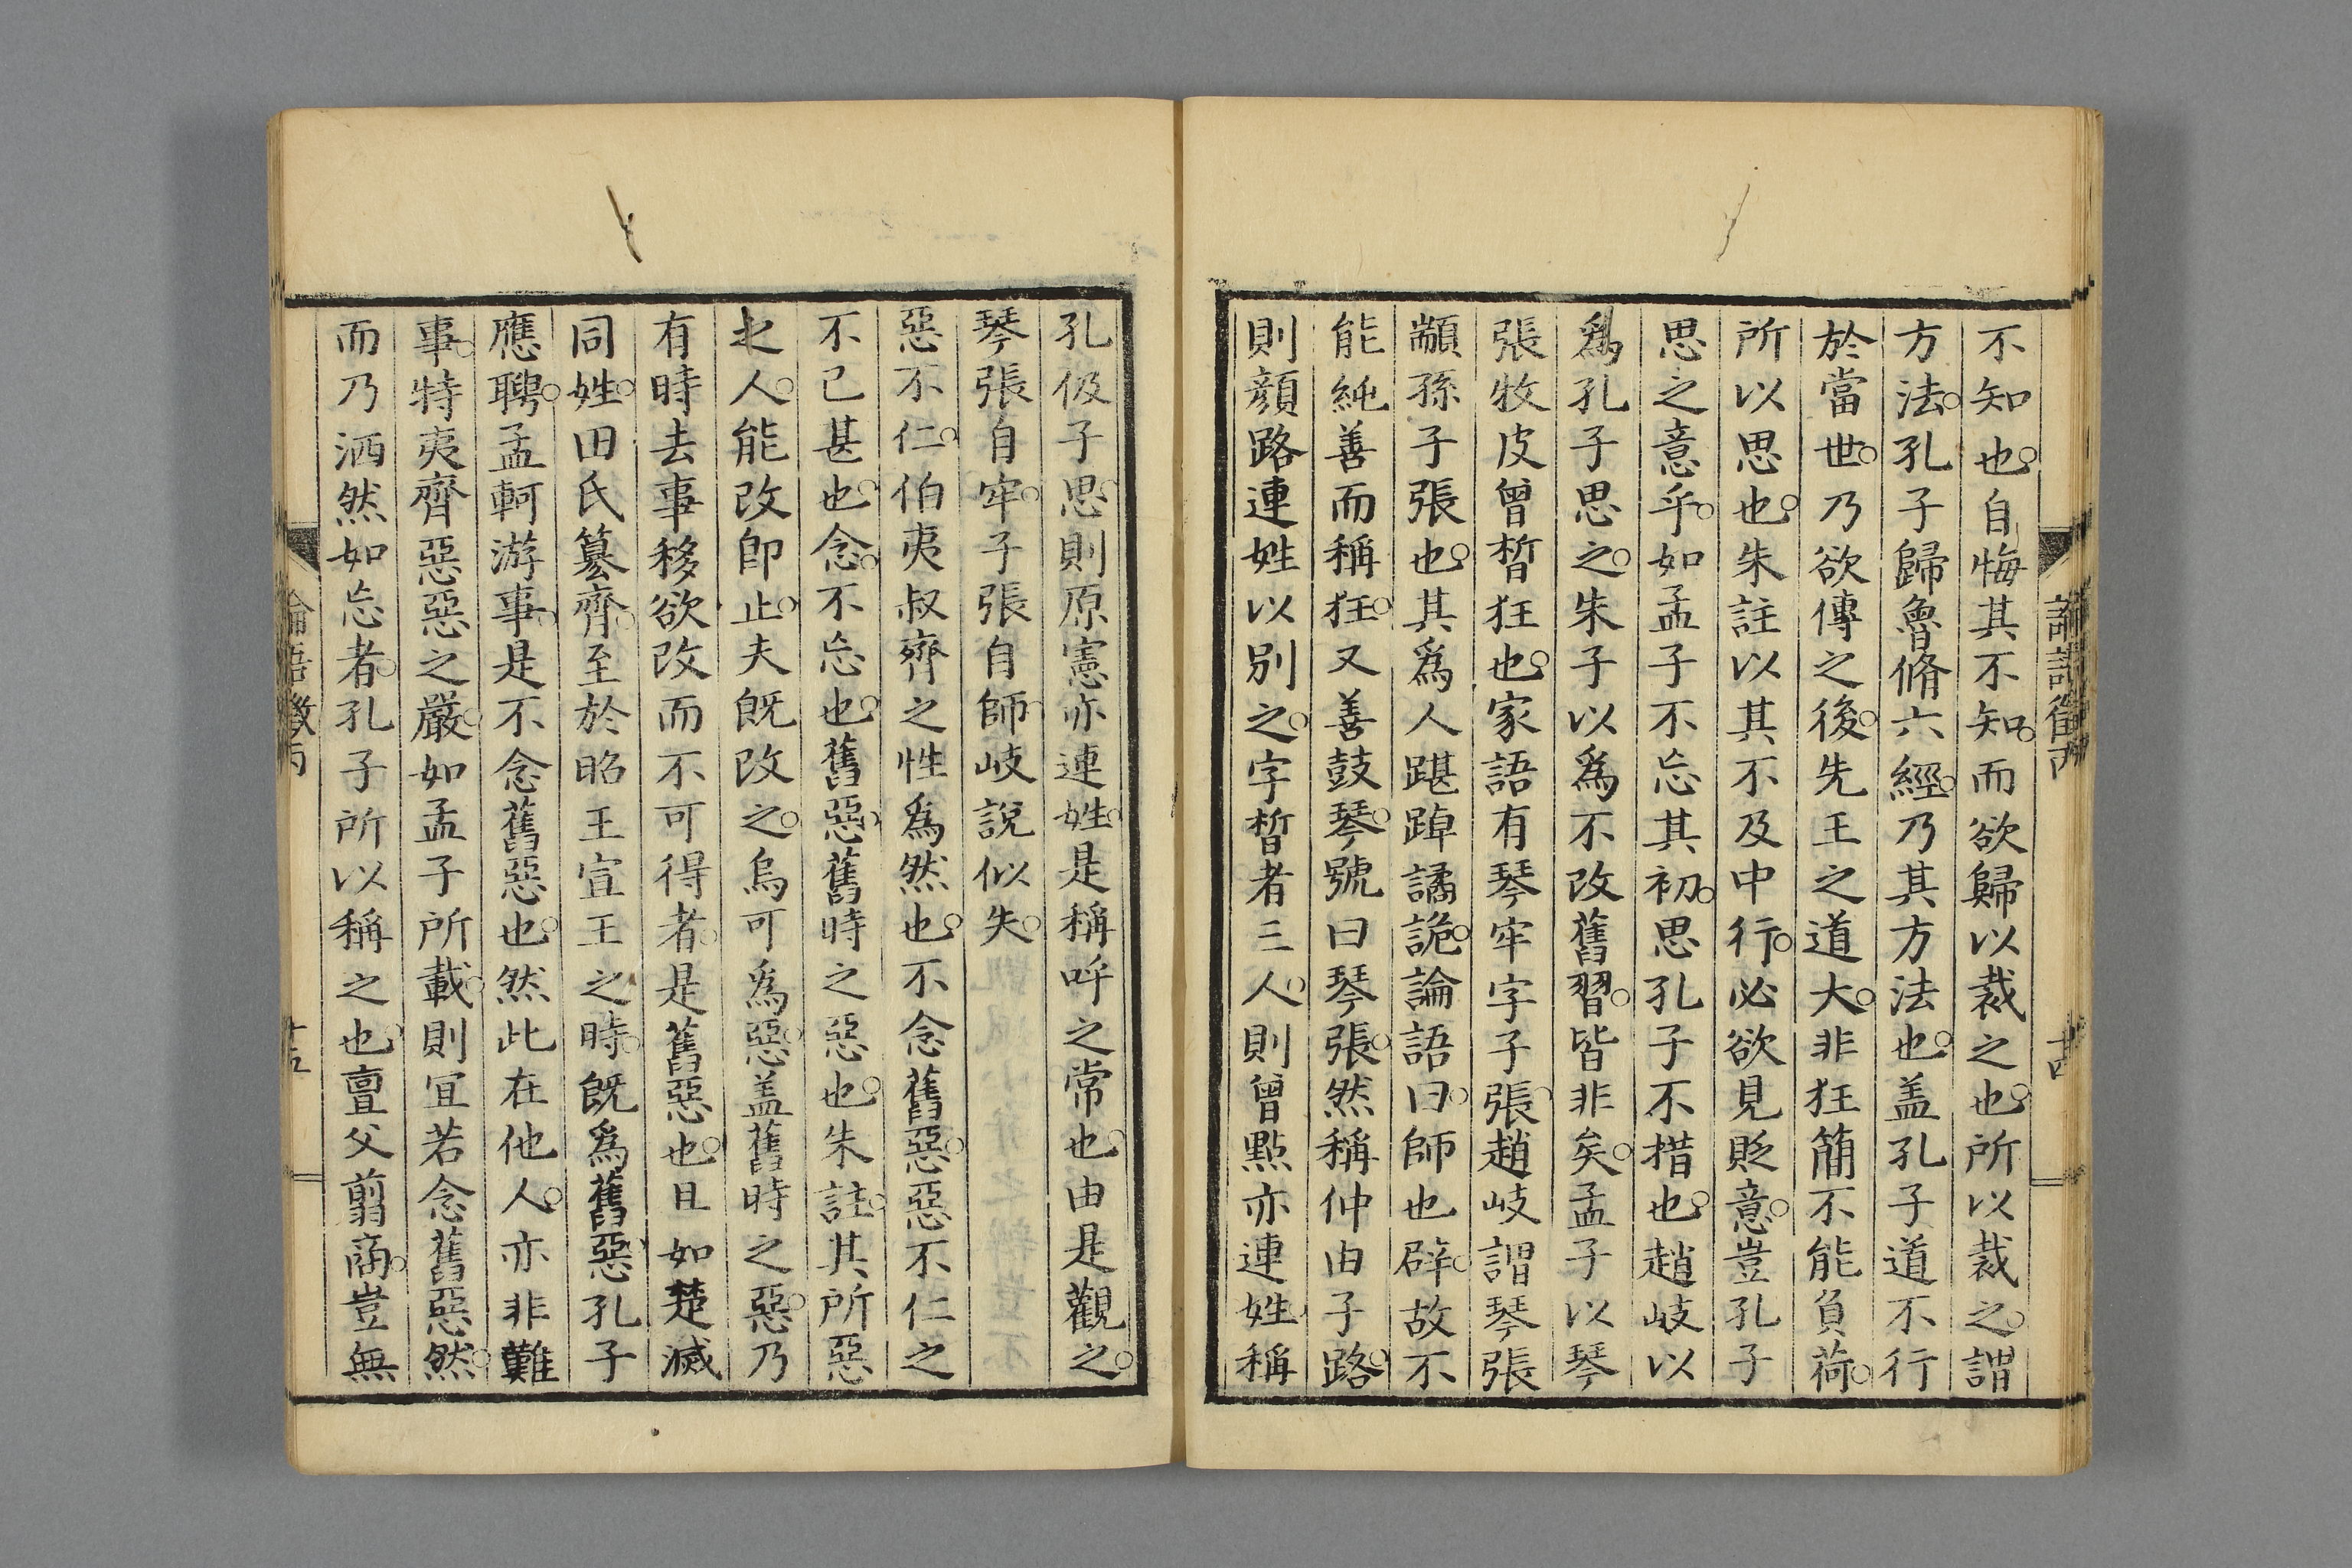 不知也自悔其不知而欲歸以裁之也所以裁之謂
方法孔子歸魯脩六經乃其方法也盖孔子道不行
於當世乃欲傳之後先王之道大非狂簡不能負荷
所以思也朱註以其不及中行必欲見貶意豈孔子
思之意乎如孟子不忘其初思孔子不措也趙岐以
爲孔子思之朱子以爲不改舊習皆非矣孟子以琴
張牧皮曾晳狂也家語有琴牢字子張趙岐謂琴張
顓孫子張也其爲人踸踔譎詭論語曰師也辟故不
能純善而稱狂又善鼓琴號曰琴張然稱仲由子路
則顏路連姓以別之字晳者三人則曾點亦連姓稱
孔伋子思則原憲亦連姓是稱呼之常也由是觀之
琴張自牢子張自師岐說似失
惡不仁伯夷叔齊之性爲然也不念舊惡惡不仁之
不已甚也念不忘也舊惡舊時之惡也朱註其所惡
之人能改即止夫既改之烏可爲惡盖舊時之惡乃
有時去事移欲改而不可得者是舊惡也且如楚滅
同姓田氏簒齊至於昭王宣王之時既爲舊惡孔子
應聘孟軻游事是不念舊惡也然此在他人亦非難
事特夷齊惡惡之嚴如孟子所載則宜若念舊惡然
而乃洒然如忘者孔子所以稱之也亶父翦商豈無
論語徵丙
十五